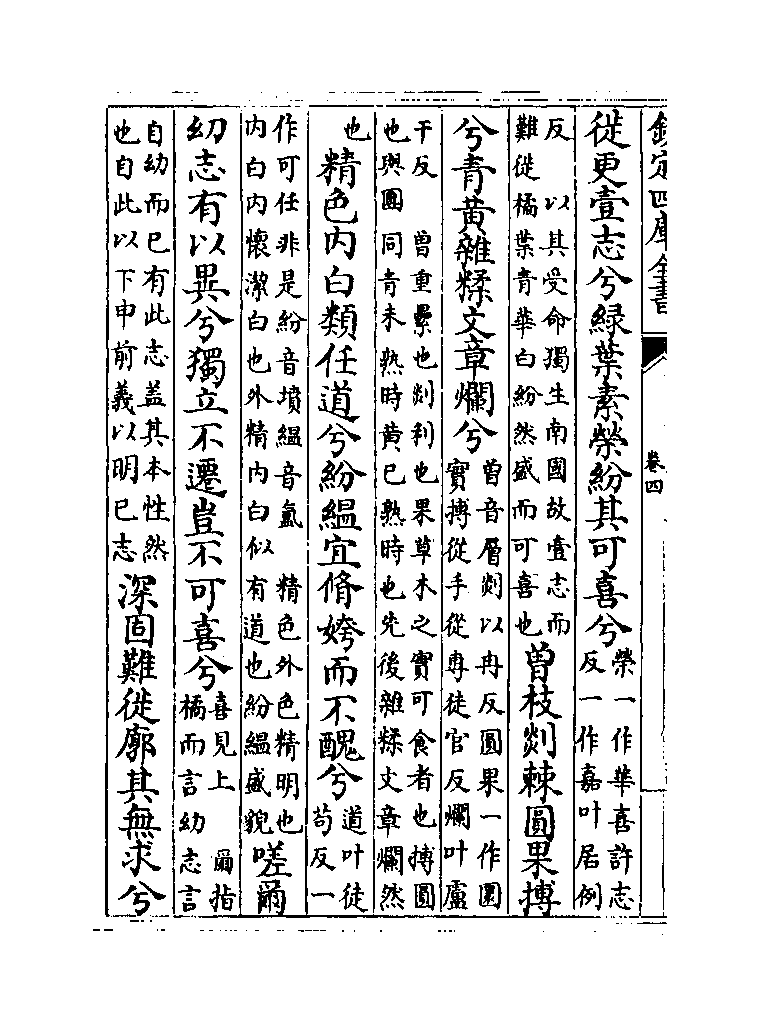 欽定四庫全書
卷四
徙更壹志兮緑葉素榮紛其可喜兮
榮一作華喜許志
反一作嘉叶居例
反　以其受命獨生南國故壹志而
難徙橘葉青華白紛然盛而可喜也
曽枝剡棘圓果摶
兮青黄雜糅文章爛兮
曽音層剡以冉反圓果一作圜
實摶從手從專徒官反爛叶盧
干反　曽重纍也剡利也果草木之實可食者也摶圓
也與團同青未熟時黄已熟時也先後雜糅文章爛然
也
精色内白類任道兮紛緼宜脩姱而不醜兮
道叶徒
苟反一
作可任非是紛音墳緼音氲　精色外色精明也
内白内懷潔白也外精内白似有道也紛緼盛貌
嗟爾
幼志有以異兮獨立不遷豈不可喜兮
喜見上　爾指
橘而言幼志言
自幼而已有此志盖其本性然
也自此以下申前義以明已志
深固難徙廓其無求兮